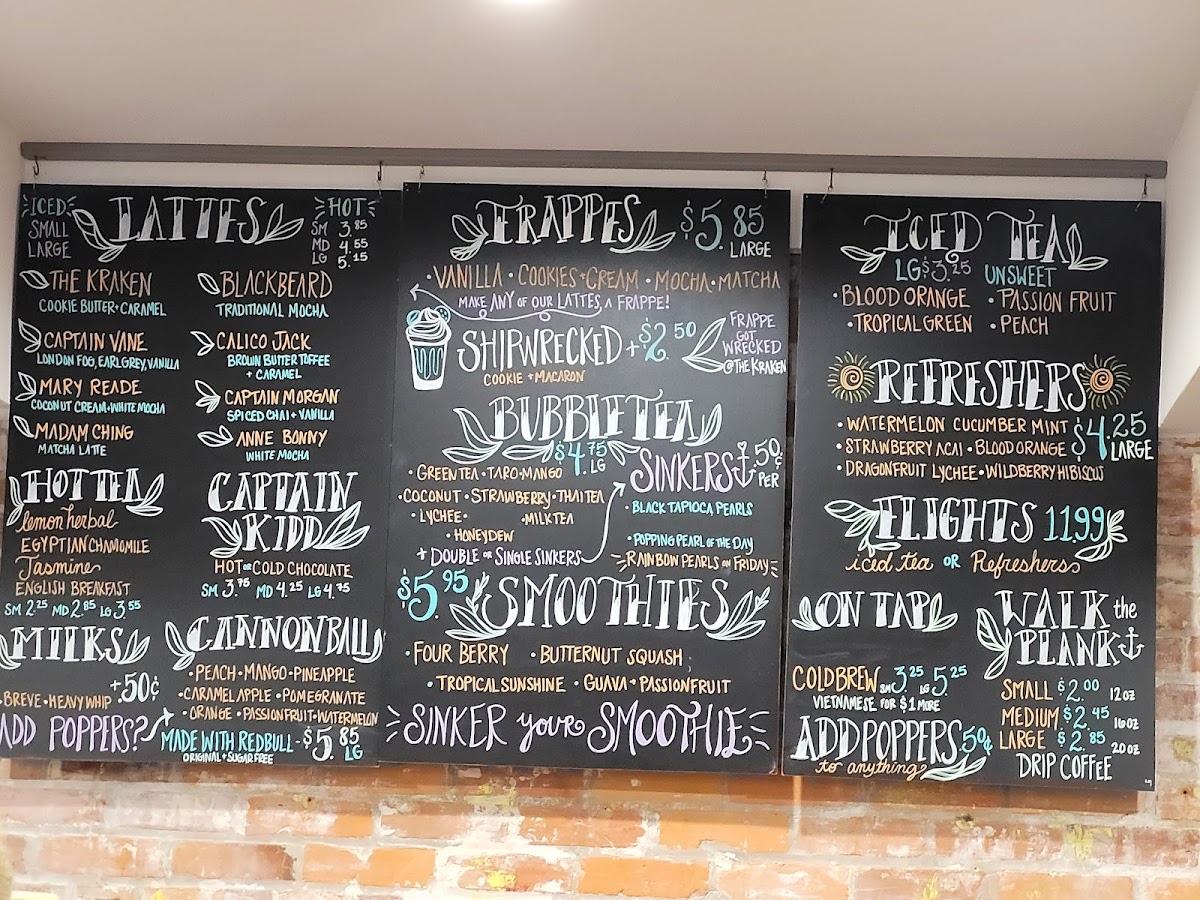 ICED
SMALL
LARGE
LATTES
HOT
SM 3.85
MD 4.55
LG 5.15
THE KRAKEN
COOKIE BUTTER + CARAMEL
BLACKBEARD
TRADITIONAL MOCHA
CAPTAIN VANE
LONDON FOG, EARL GREY, VANILLA
CALICO JACK
BROWN BUTTER TOFFEE
+ CARAMEL
MARY READE
COCONUT CREAM + WHITE MOCHA
CAPTAIN MORGAN
SPICED CHAI + VANILLA
MADAM CHING
MATCHA LATTE
ANNE BONNY
WHITE MOCHA
HOT TEA
lemon herbal
EGYPTIAN CHAMOMILE
Jasmine
ENGLISH BREAKFAST
SM 2.25 MD 2.85 LG 3.55
CAPTAIN
KIDD
HOT OR COLD CHOCOLATE
SM 3.75 MD 4.25 LG 4.75
MILKS
+50¢
BREVE • HEAVY WHIP
ADD POPPERS?
CANNONBALL
• PEACH • MANGO • PINEAPPLE
• CARAMEL APPLE • POMEGRANATE
• ORANGE • PASSIONFRUIT • WATERMELON
MADE WITH REDBULL - $5.85 LG
ORIGINAL + SUGAR FREE
FRAPPES $5.85
LARGE
• VANILLA • COOKIES + CREAM • MOCHA • MATCHA
MAKE ANY OF OUR LATTES, A FRAPPE!
SHIPWRECKED +$2.50
COOKIE + MACARON
FRAPPE
GOT
WRECKED
@THE KRAKEN
BUBBLE TEA
$4.75
LG
• GREEN TEA • TARO • MANGO
• COCONUT • STRAWBERRY • THAI TEA
• LYCHEE • MILK TEA
• HONEYDEW
+ DOUBLE OR SINGLE SINKERS
SINKERS .50¢
PER
• BLACK TAPIOCA PEARLS
• POPPING PEARL OF THE DAY
RAINBOW PEARLS ON FRIDAY
$5.95 SMOOTHIES
• FOUR BERRY • BUTTERNUT SQUASH
• TROPICAL SUNSHINE • GUAVA + PASSIONFRUIT
SINKER your SMOOTHIE
ICED TEA
LG $3.25 UNSWEET
• BLOOD ORANGE • PASSION FRUIT
• TROPICAL GREEN • PEACH
REFRESHERS
• WATERMELON CUCUMBER MINT
• STRAWBERRY ACAI • BLOOD ORANGE
• DRAGONFRUIT LYCHEE • WILDBERRY HIBISCUS
$4.25
LARGE
FLIGHTS 11.99
iced tea OR Refreshers
ON TAP
COLD BREW SM 3.25 LG 5.25
VIETNAMESE FOR $1 MORE
ADD POPPERS .50¢
to anything
WALK the
PLANK
SMALL $2.00 12 OZ
MEDIUM $2.45 16 OZ
LARGE $2.85 20 OZ
DRIP COFFEE